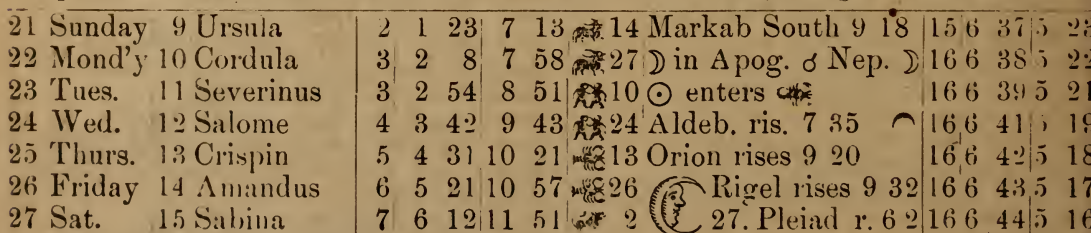 21 Sunday 9 Ursula 2 1 23 7 13 14 Markab South 9 18 15 6 37 5 23
22 Mond'y 10 Cordula 3 2 8 7 58 27 ☽ in Apog. ☌ Nep. ☽ 16 6 38 5 22
23 Tues. 11 Severinus 3 2 54 8 51 10 ☉ enters 16 6 39 5 21
24 Wed. 12 Salome 4 3 42 9 43 24 Aldeb. ris. 7 35 16 6 41 5 19
25 Thurs. 13 Crispin 5 4 31 10 21 13 Orion rises 9 20 16 6 42 5 18
26 Friday 14 Amandus 6 5 21 10 57 26 Rigel rises 9 32 16 6 43 5 17
27 Sat. 15 Sabina 7 6 12 11 51 2 27. Pleiad r. 6 2 16 6 44 5 16